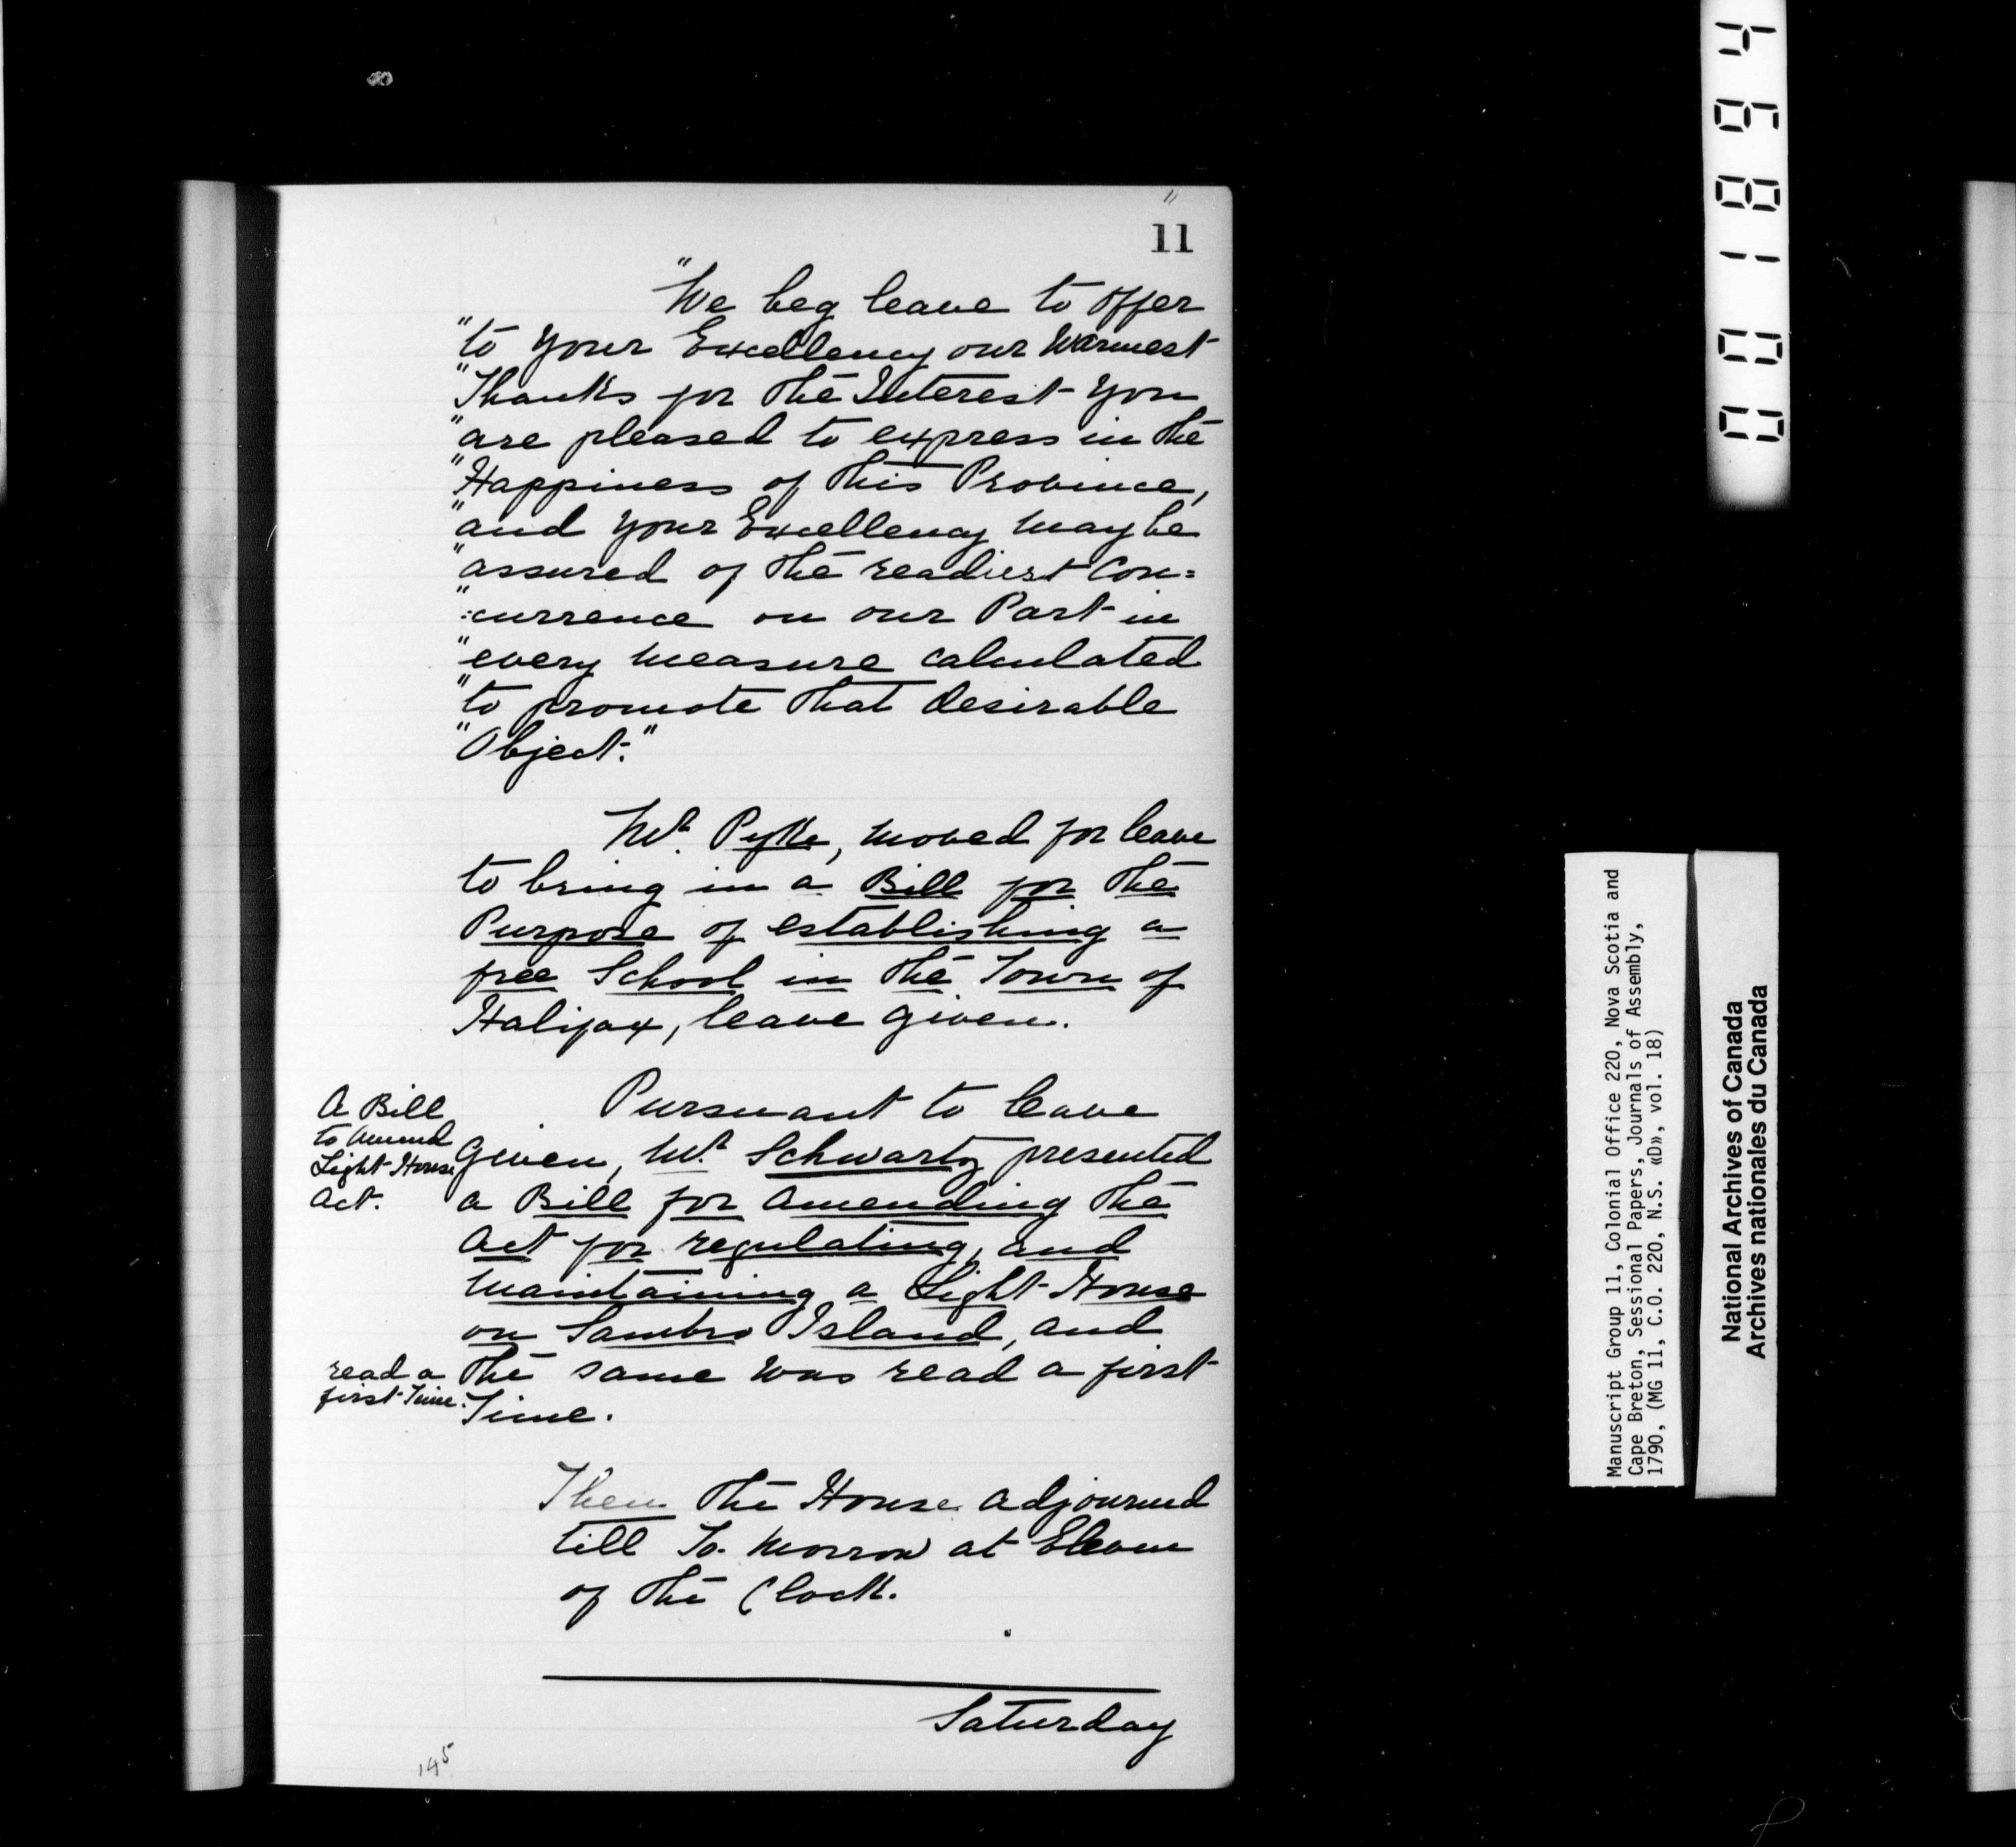 "
11
"We beg leave to offer
"to Your Excellency our warmest
"Thanks for the Interest You
"are pleased to express in the
"Happiness of this Province,
"and Your Excellency may be
"assured of the readiest Con=
":currence on our Part in
"every measure calculated
"to promote that desirable
"Object."
Mr. Pyke, moved for leave
to bring in a Bill for the
Purpose of establishing a
free School in the Town of
Halifax, leave given.
A Bill
to amend
Light-House
Act.
Pursuant to leave
Given, Mr. Schwartz presented
a Bill for amending the
Act for regulating, and
maintaining a Light-House
on Sambro Island, and
the same was read a first
Time.
read a
first Time.
Then the House adjourned
till To-morrow at Eleven
of the Clock.
Saturday
145
0018964
Manuscript Group 11, Colonial Office 220, Nova Scotia and
Cape Breton, Sessional Papers, Journals of Assembly,
1790, (MG 11, C.O. 220, N.S. «D», vol. 18)
National Archives of Canada
Archives nationales du Canada